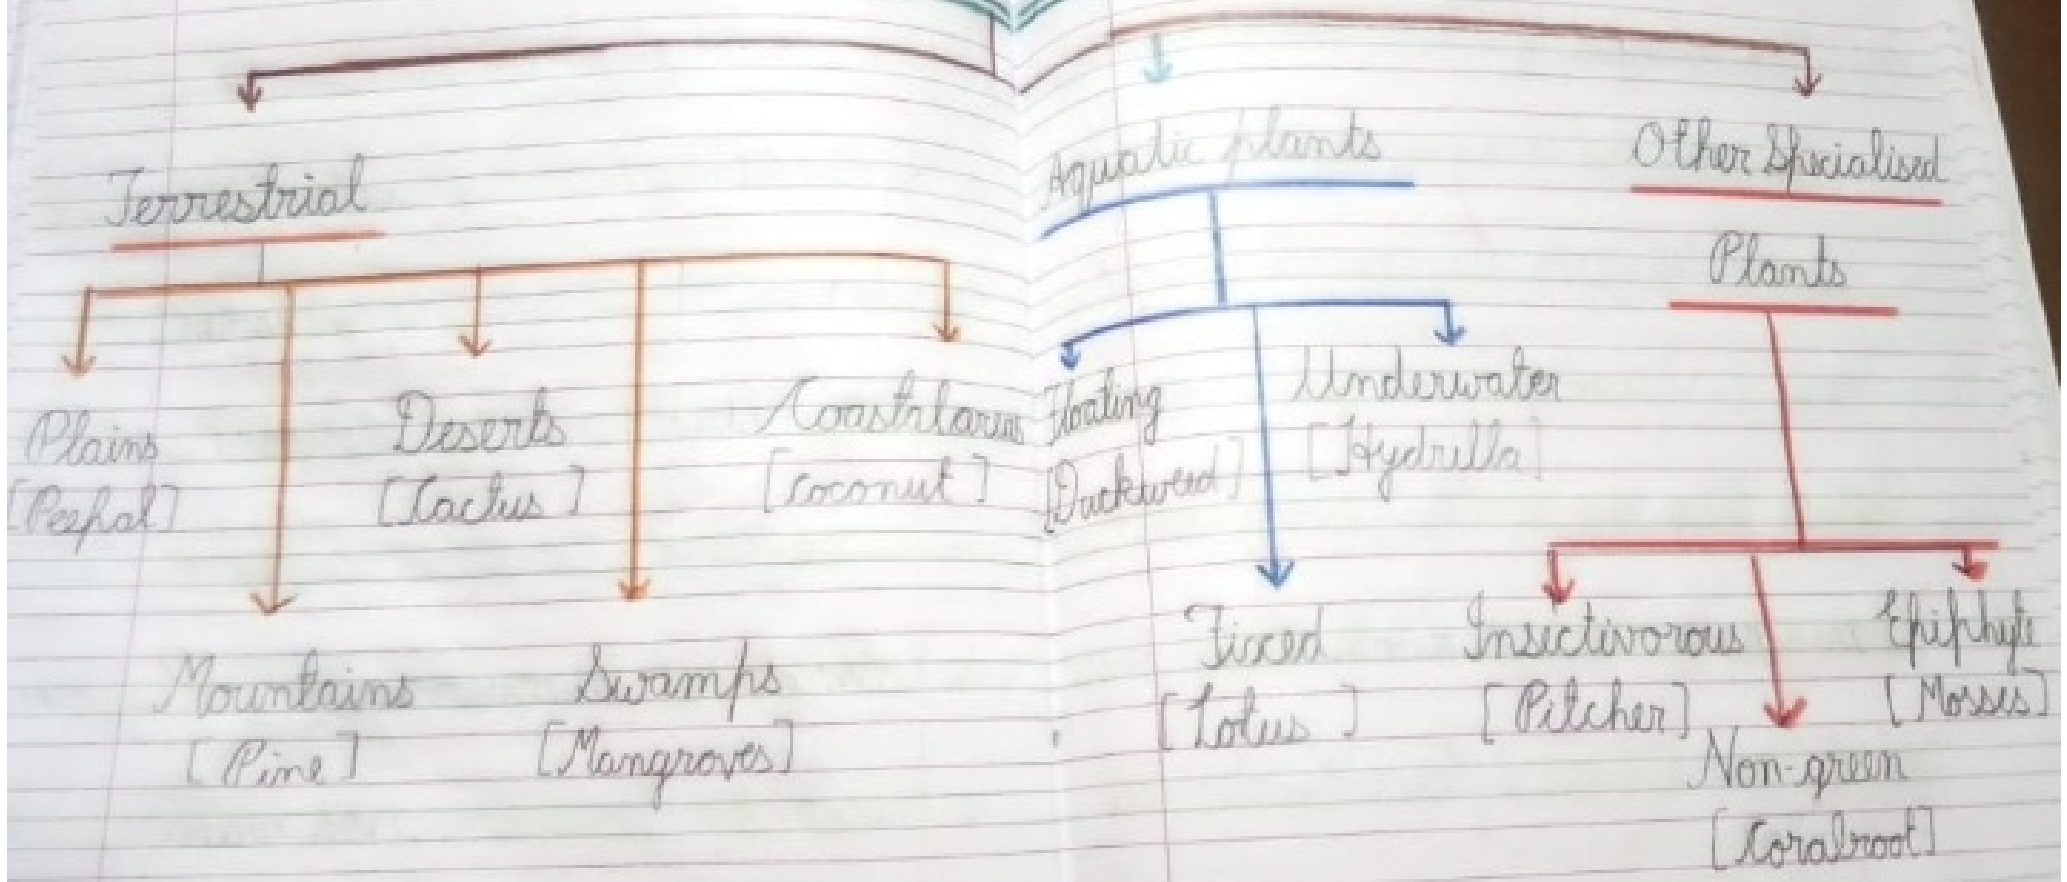 Terrestrial
Plains
[Peepal]
Mountains
[Pine]
Deserts
[Cactus]
Swamps
[Mangroves]
Coastalareas
[Coconut]
Aquatic plants
Floating
[Duckweed]
Fixed
[Lotus]
Underwater
[Hydrilla]
Other Specialised
Plants
Insectivorous
[Pitcher]
Non-green
[Coralroot]
Epiphyte
[Mosses]